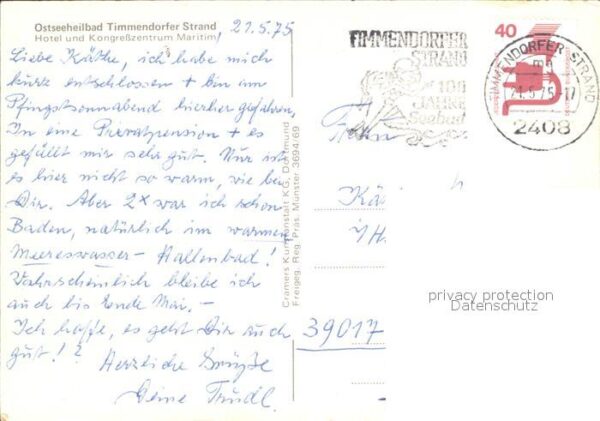 Ostseeheilbad Timmendorfer Strand
Hotel und Kongreßzentrum Maritim
21.5.75
Liebe Käthe, ich habe mich
kurz entschlossen + bin am
Pfingstsonnabend hierher gefahren,
In eine Privatpension + es
gefällt mir sehr gut. Nur ist
es hier nicht so warm, wie bei
Dir. Aber 2x war ich schon
Baden, natürlich im warmen
Meereswasser- Hallenbad!
Wahrscheinlich bleibe ich
auch bis Ende Mai.-
Ich hoffe, es geht Dir auch
gut!? Herzliche Grüße
Deine Trudl.
Cramers Kunstanstalt KG, Dortmund
Freigeg. Reg. Präs. Münster 3694/69
TIMMENDORFER
STRAND
100
JAHRE
Seebad
40
TIMMENDORFER STRAND
21.5.75-17
2408
39017
privacy protection
Datenschutz